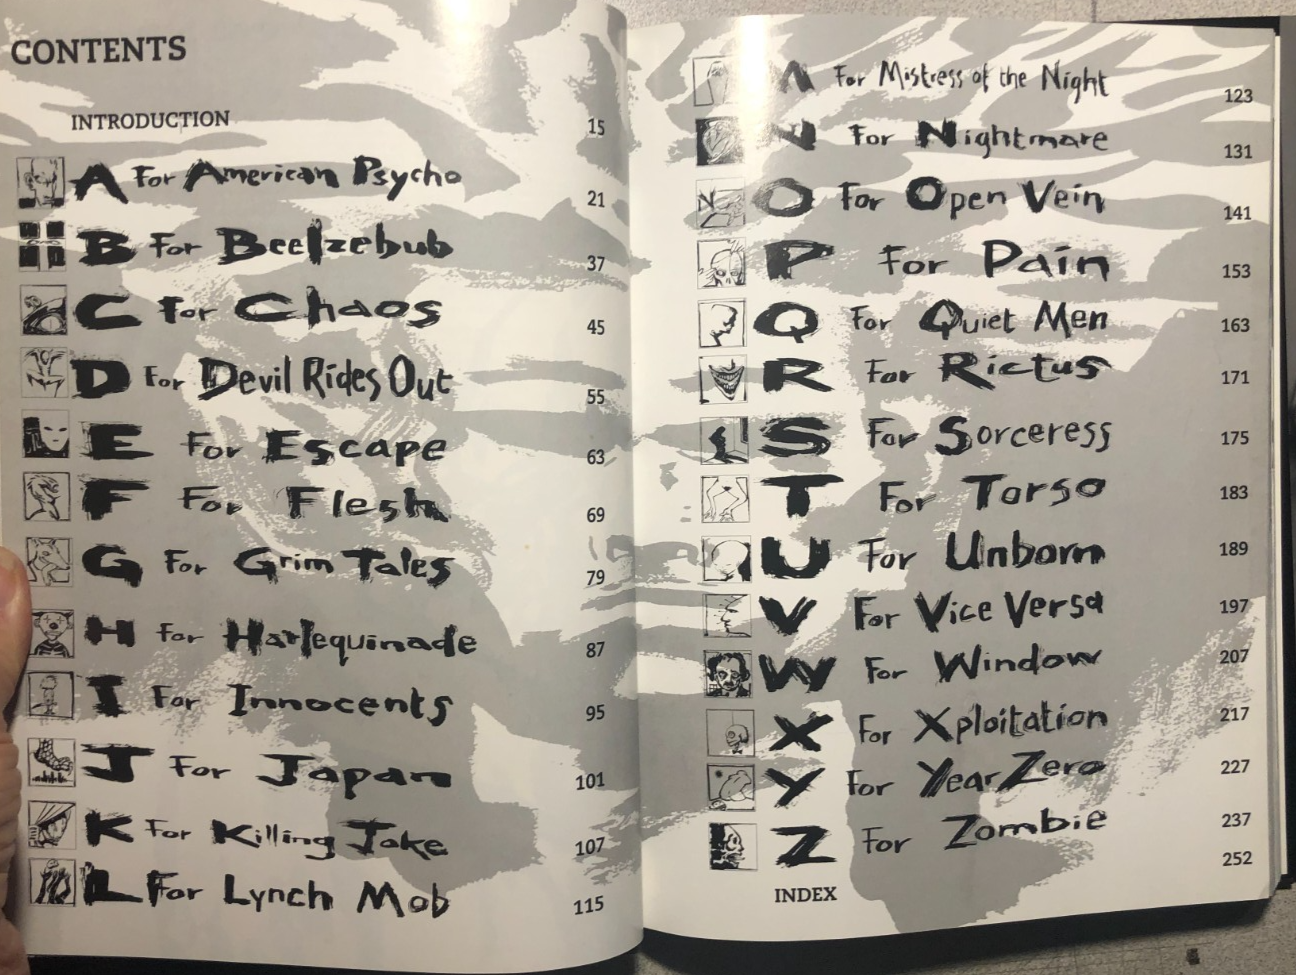 CONTENTS
INTRODUCTION 15
A For American Psycho 21
B For Beelzebub 37
C For Chaos 45
D For Devil Rides Out 55
E For Escape 63
F For Flesh 69
G For Grim Tales 79
H For Harlequinade 87
I For Innocents 95
J For Japan 101
K For Killing Joke 107
L For Lynch Mob 115
M For Mistress of the Night 123
N For Nightmare 131
O For Open Vein 141
P For Pain 153
Q For Quiet Men 163
R For Rictus 171
S For Sorceress 175
T For Torso 183
U For Unborn 189
V For Vice Versa 197
W For Window 207
X For Xploitation 217
Y For Year Zero 227
Z For Zombie 237
INDEX 252